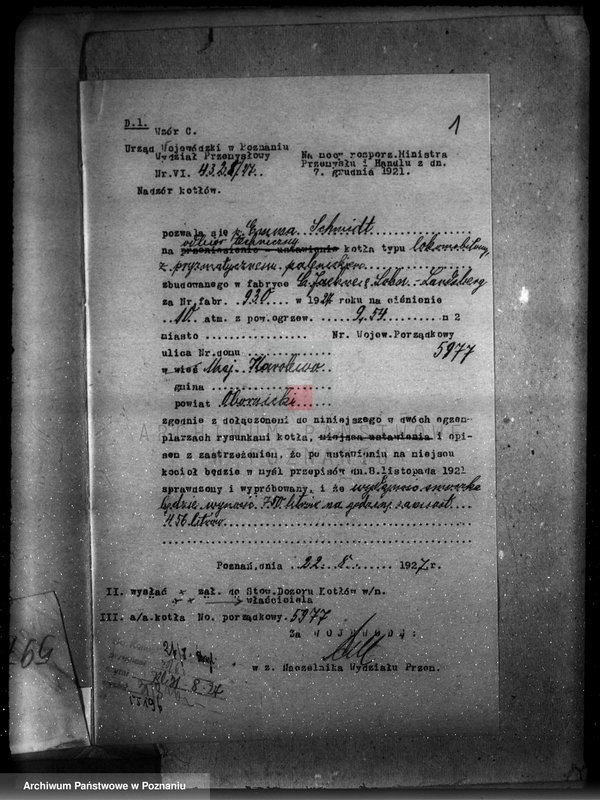 D.1.
1
Wzór C.
Urząd Wojewódzki w Poznaniu
Wydział Przemysłowy
Nr.VI.
Na mocy rozporz.Ministra
Przemysłu i Handlu z dn.
7. grudnia 1921.
Nadzór kotłów.
pozwala się p. Emma Schmidt
odbiór techniczny
na przeniesienie - ustawienie kotła typu lokomobilowy
z pryzmatycznem paleniskiem
zbudowanego w fabryce Landsberg
za Nr.fabr. 930 w 1924 roku na ciśnienie
10 atm. z pow.ogrzew. 9.54 m 2
miasto Nr. Wojew.Porządkowy
ulica Nr.domu 5977
w wieś Maj. Karolewo
gmina
powiat Obornicki
zgodnie z dołączonemi do niniejszego w dwóch egzem-
plarzach rysunkami kotła, miejsca ustawienia i opi-
sem z zastrzeżeniem, że po ustawieniu na miejscu
kocioł będzie w myśl przepisów dn.8.listopada 1921
sprawdzony i wypróbowany, i że
będzie wynosić 750 litrów na godzinę zamiast
456 litrów
Poznań,dnia 22 8 1927 r.
II. wysłać zał. do Stow.Dozoru Kotłów w/m.
właściciela
III. a/a.kotła No. porządkowy. 5977
Za WOJEWODĘ:
w z. Naczelnika Wydziału Przem.
Archiwum Państwowe w Poznaniu